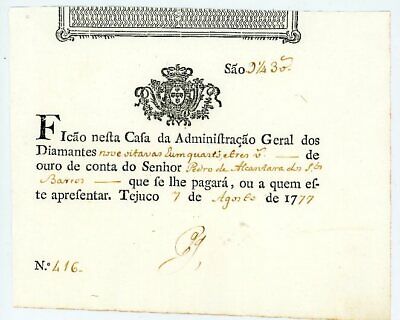 São 9 1/4 3 v.
Ficão nesta Casa da Administração Geral dos
Diamantes nove oitavas e hum quarto e tres v. — de
ouro de conta do Senhor Pedro de Alcantara dos S.tos
Barros — que se lhe pagará, ou a quem es-
te apresentar. Tejuco 7 de Agosto de 1777
N.º 416.